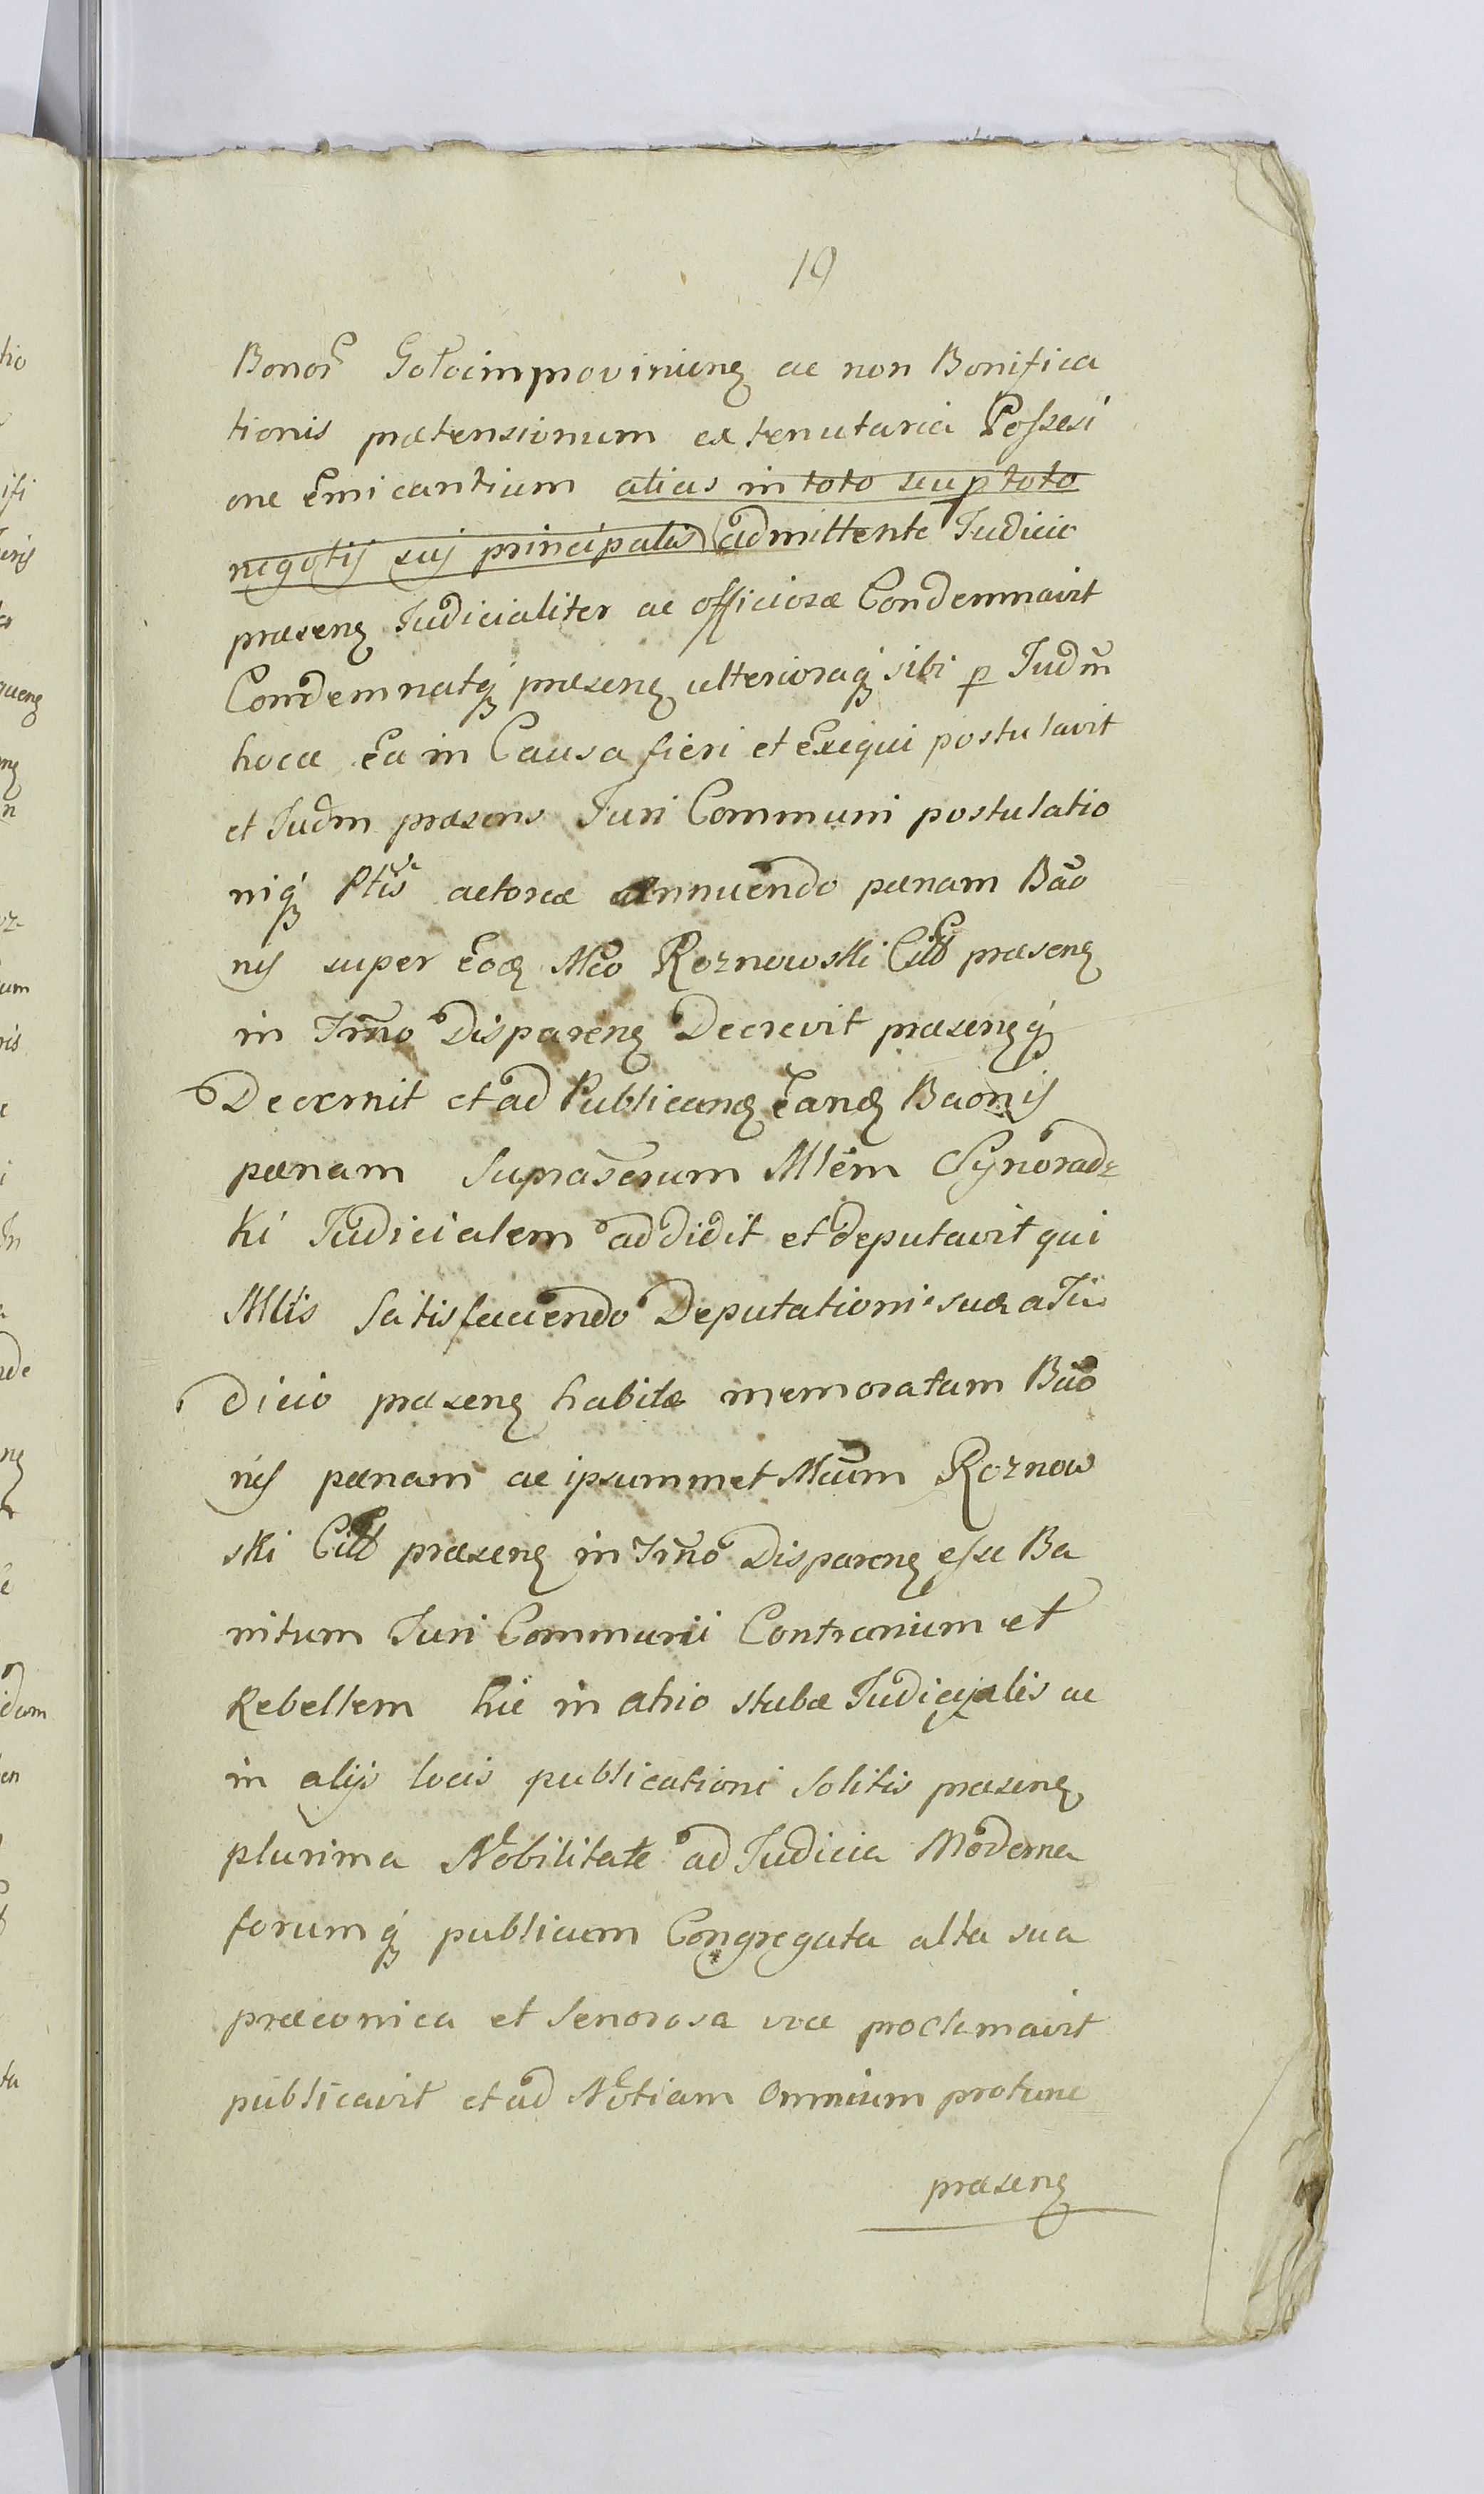 19
Bonor̃ ac non Bonifica
tionis prætensionum ex tenutaria Possesi
one Emicantium alias in toto seu p toto
negotij sui principalis admittente Judicio
præsenꝫ Judicialiter ac officiosæ Condemnavit
Condemnatqꝫ præsenꝫ ulterioraqꝫ sibi p Judm̃
hocce Ea in Causa fieri et Exequi postulavit
et Judm præsens Juri Communi postulatio
niqꝫ Ptis actoreæ annuendo pænam Bão
nis super Eodꝫ Mco Roznowski Citt præsenꝫ
in Trño Disparenꝫ Decrevit præsenꝫqꝫ
Decernit et ad Publicandꝫ Eandꝫ Baonis
pænam Suprascrum Mlem Synoradz
ki Judicialem addidit et deputavit qui
Mlis Satisfaciendo Deputationi suæ a Ju
dicio præsenꝫ habitæ memoratam Bão
nis pænam ac ipsummet Mcum Roznow
ski Citt præsenꝫ in Trño Disparenꝫ esse Ba
nitum Juri Communi Contrarium et
Rebellem hic in atrio stubæ Judicialis ac
in alijs locis publicationi Solitis præsenꝫ
plurima Nobilitate ad Judicia Moderna
forumqꝫ publicum Congregata alta sua
præconica et Senorosa voce proclamavit
publicavit et ad Notiam Omnium protunc
præsenꝫ